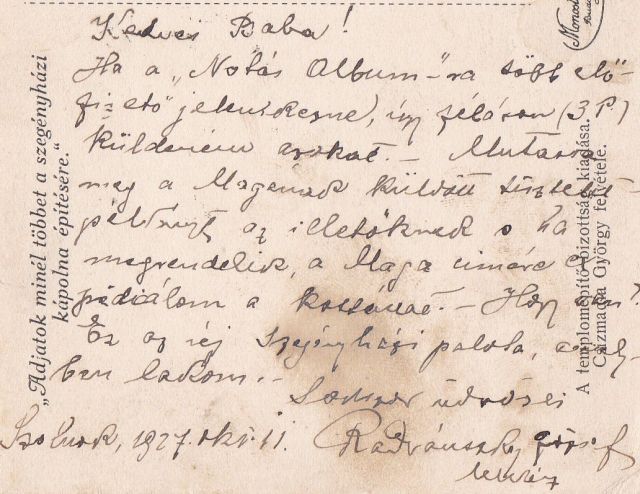 Kedves Baba!
Ha a „Nótás Album"-ra több elő-
fizető jelentkezne, úgy féláron (3 P)
küldeném azokat. – Mutassa
meg a Magának küldött tisztelet-
példányt az illetőknek s ha
megrendelik, a Maga címére ex-
pediálom a kottákat. – Hogy van?
Ez az új szegényházi palota, amely-
ben lakom. –
üdvözli
Szolnok, 1927. okt. 11. Radvánszky József
„Adjatok minél többet a szegényházi
kápolna építésére."
A templomépítő-bizottság kiadása.
Csizmadia György felvétele.